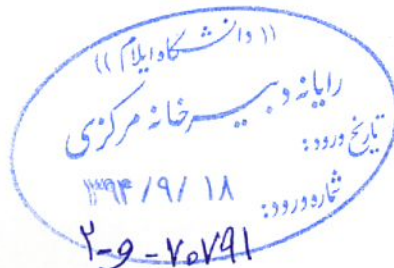 ((دانشگاه ایلام))
رایانه دبیرخانه مرکزی
تاریخ ورود:
۱۳۹۴/۹/۱۸
شماره ورود:
۲-و-۷۰۷۹۱